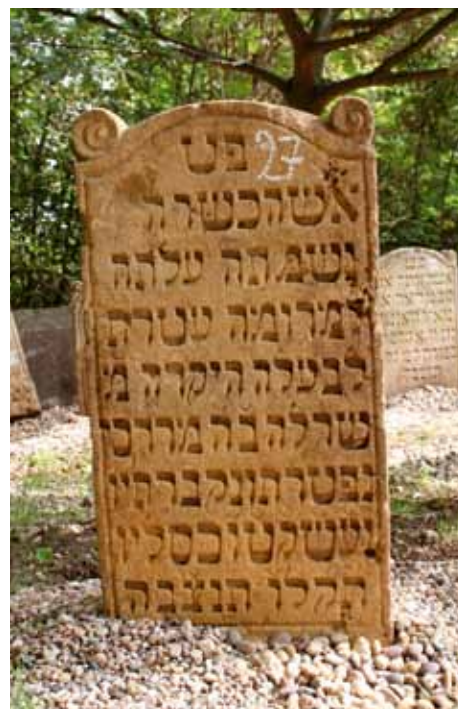 פט 27
אשה כשרה
נשמתה עלתה
למרומה עטרת
לבעלה היקרה מ׳
שרלה בה מרדכי
נפטרת ונקברת יו׳
עש״ק טו כסליו
תקלו תנצבה